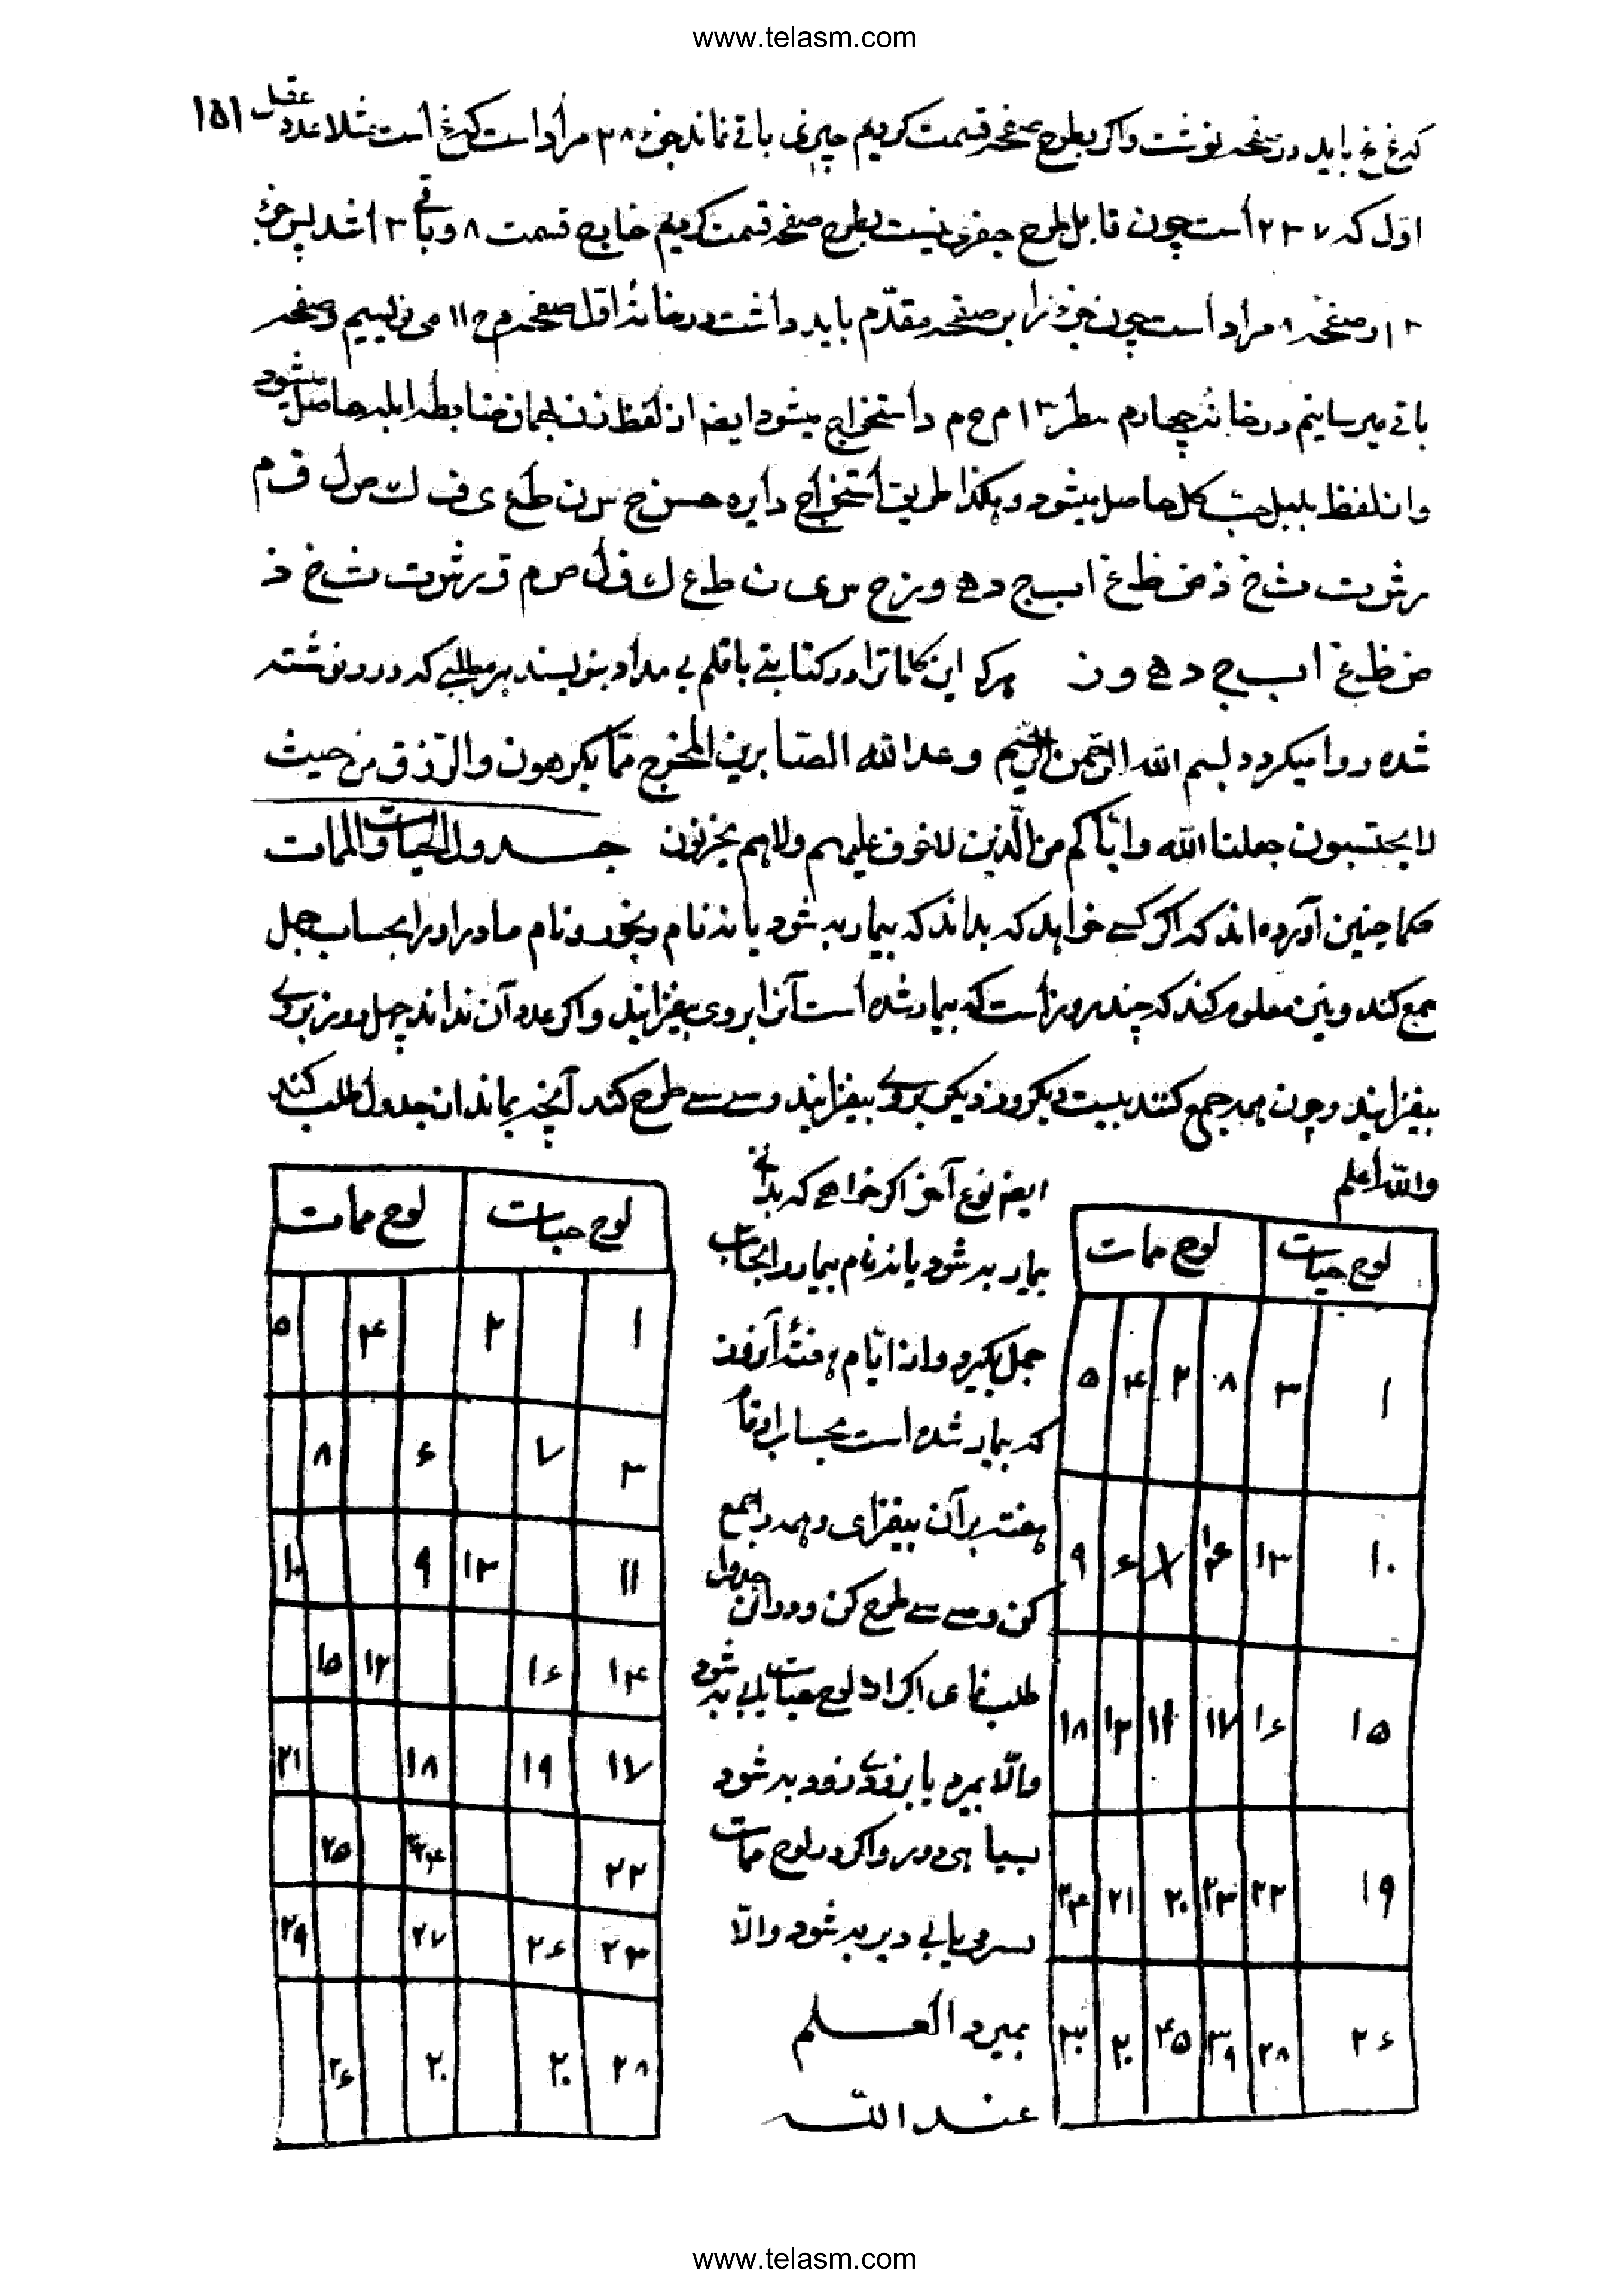 www.telasm.com
۱۵۱
که غ غ باید در صفحه نوشت و اکر بطرح صفحه قسمت کردیم چیزی باقی نماند جزء ۲۸ مراد است که غ است مثلا عدد
اول که ۲۳۷ است چون قابل طرح جفری نیست بطرح صفحه قسمت کردیم خارج قسمت ۸ و باقی ۱۳ شد پس جزء
۱۳ و صفحه ۸ مراد است چون جزء را بر صفحه مقدم باید داشت در خانه اول صفحه م ح ۱۱ می نویسیم و صفحه
باقی میرسانیم در خانه چهارم سطر ۱۳ م ح م د استخراج میشود ایضا از لفظ زن بهمان ضابطه ابله حاصل میشود
و از لفظ بلبل کل حاصل میشود و هکذا طریق استخراج دایره ح س ز ح س ن ط ع ی ف ک ص ل ق م
ر ش ت ث خ ذ ض ظ غ ا ب ج د ه و ز ح س ی ن ط ع ک ف ل ص م ق ر ش ت ث خ ذ
ض ظ غ ا ب ج د ه و ز هرکه این کلماترا در کتابتی با قلم بی مداد بنویسند هر مطلبی که در او نوشته
شده روا میکردد بسم الله الرحمن الرحیم وعد الله الصابرین المخرج مما یکرهون والرزق من حیث
لا یحتسبون جعلنا الله وایاکم من الذین لا خوف علیهم ولا هم یحزنون جدول الحیات والممات
حکما چنین آورده اند که اکر کسی خواهد که بداند که بیمار به شود یا نه نام رنجور و نام مادر او را بحساب جمل
جمع کند و نیز معلوم کند که چند روز است که بیمار شده است آنرا بروی بیفزاید و اکر عدد آن نداند چهل روز بروی
بیفزایند و چون همه جمع کنند بیست و یکروز دیکر بروی بیفزایند و سی سی طرح کند آنچه بماند از جدول طلب کند
والله اعلم
لوح حیات لوح ممات
۱ ۳ ۸ ۲ ۴ ۵
۱۰ ۱۳ ۷ ۶ ۹
۱۵ ۱۶ ۱۷ ۱۲ ۱۸
۱۹ ۲۲ ۲۳ ۲۰ ۲۱ ۲۴
۲۶ ۲۸ ۲۹ ۲۵ ۲۰ ۳۰
ایضا نوع آخر اکر خواهی که بدانی
بیمار به شود یا نه نام بیمار را بحساب
جمل بکیرد و از ایام هفته آنروز
که بیمار شده است بحساب
هفته بر آن بیفزای و همه را جمع
کن و سی سی طرح کن و در آن جدول
طلب نمای اکر از لوح حیات یابی به شود
والا بمیرد یا بزودی زود به شود
بسیاهی در رو اکر در لوح ممات
بسرخی یابی دیر به شود والا
بمیرد العلم
عند الله
لوح حیات لوح ممات
۱ ۲ ۴ ۵
۳ ۷ ۶ ۸
۱۱ ۱۳ ۹ ۱۰
۱۴ ۱۶ ۱۲ ۱۵
۱۷ ۱۹ ۱۸ ۲۱
۲۲ ۲۴ ۲۵
۲۳ ۲۶ ۲۷ ۲۹
۲۸ ۲۰ ۲۰ ۲۶
www.telasm.com